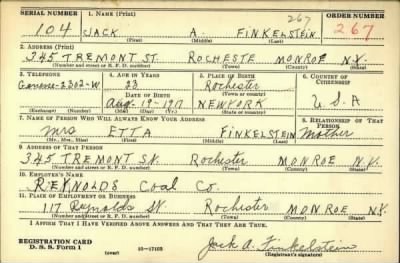 SERIAL NUMBER 1. NAME (Print) ORDER NUMBER
267
104 JACK A. FINKELSTEIN 267
(First) (Middle) (Last)
2. ADDRESS (Print)
345 TREMONT ST. ROCHESTE MONROE N.Y.
(Number and street or R. F. D. number) (Town) (County) (State)
3. TELEPHONE 4. AGE IN YEARS 5. PLACE OF BIRTH 6. COUNTRY OF CITIZENSHIP
Genesee-2302-W 23 Rochester
DATE OF BIRTH (Town or county)
Aug-19-1917 NEWYORK U.S.A
(Exchange) (Number) (Mo.) (Day) (Yr.) (State or country)
7. NAME OF PERSON WHO WILL ALWAYS KNOW YOUR ADDRESS 8. RELATIONSHIP OF THAT PERSON
Mrs ETTA FINKELSTEIN Mother
(Mr., Mrs., Miss) (First) (Middle) (Last)
9. ADDRESS OF THAT PERSON
345 TREMONT St. Rochester MONROE N.Y.
(Number and street or R. F. D. number) (Town) (County) (State)
10. EMPLOYER'S NAME
REYNOLDS Coal Co.
11. PLACE OF EMPLOYMENT OR BUSINESS
117 Reynolds St. Rochester MONROE N.Y.
(Number and street or R. F. D. number) (Town) (County) (State)
I AFFIRM THAT I HAVE VERIFIED ABOVE ANSWERS AND THAT THEY ARE TRUE.
REGISTRATION CARD
D. S. S. Form 1 (over) 16-17105
Jack A. Finkelstein
(Registrant's signature)